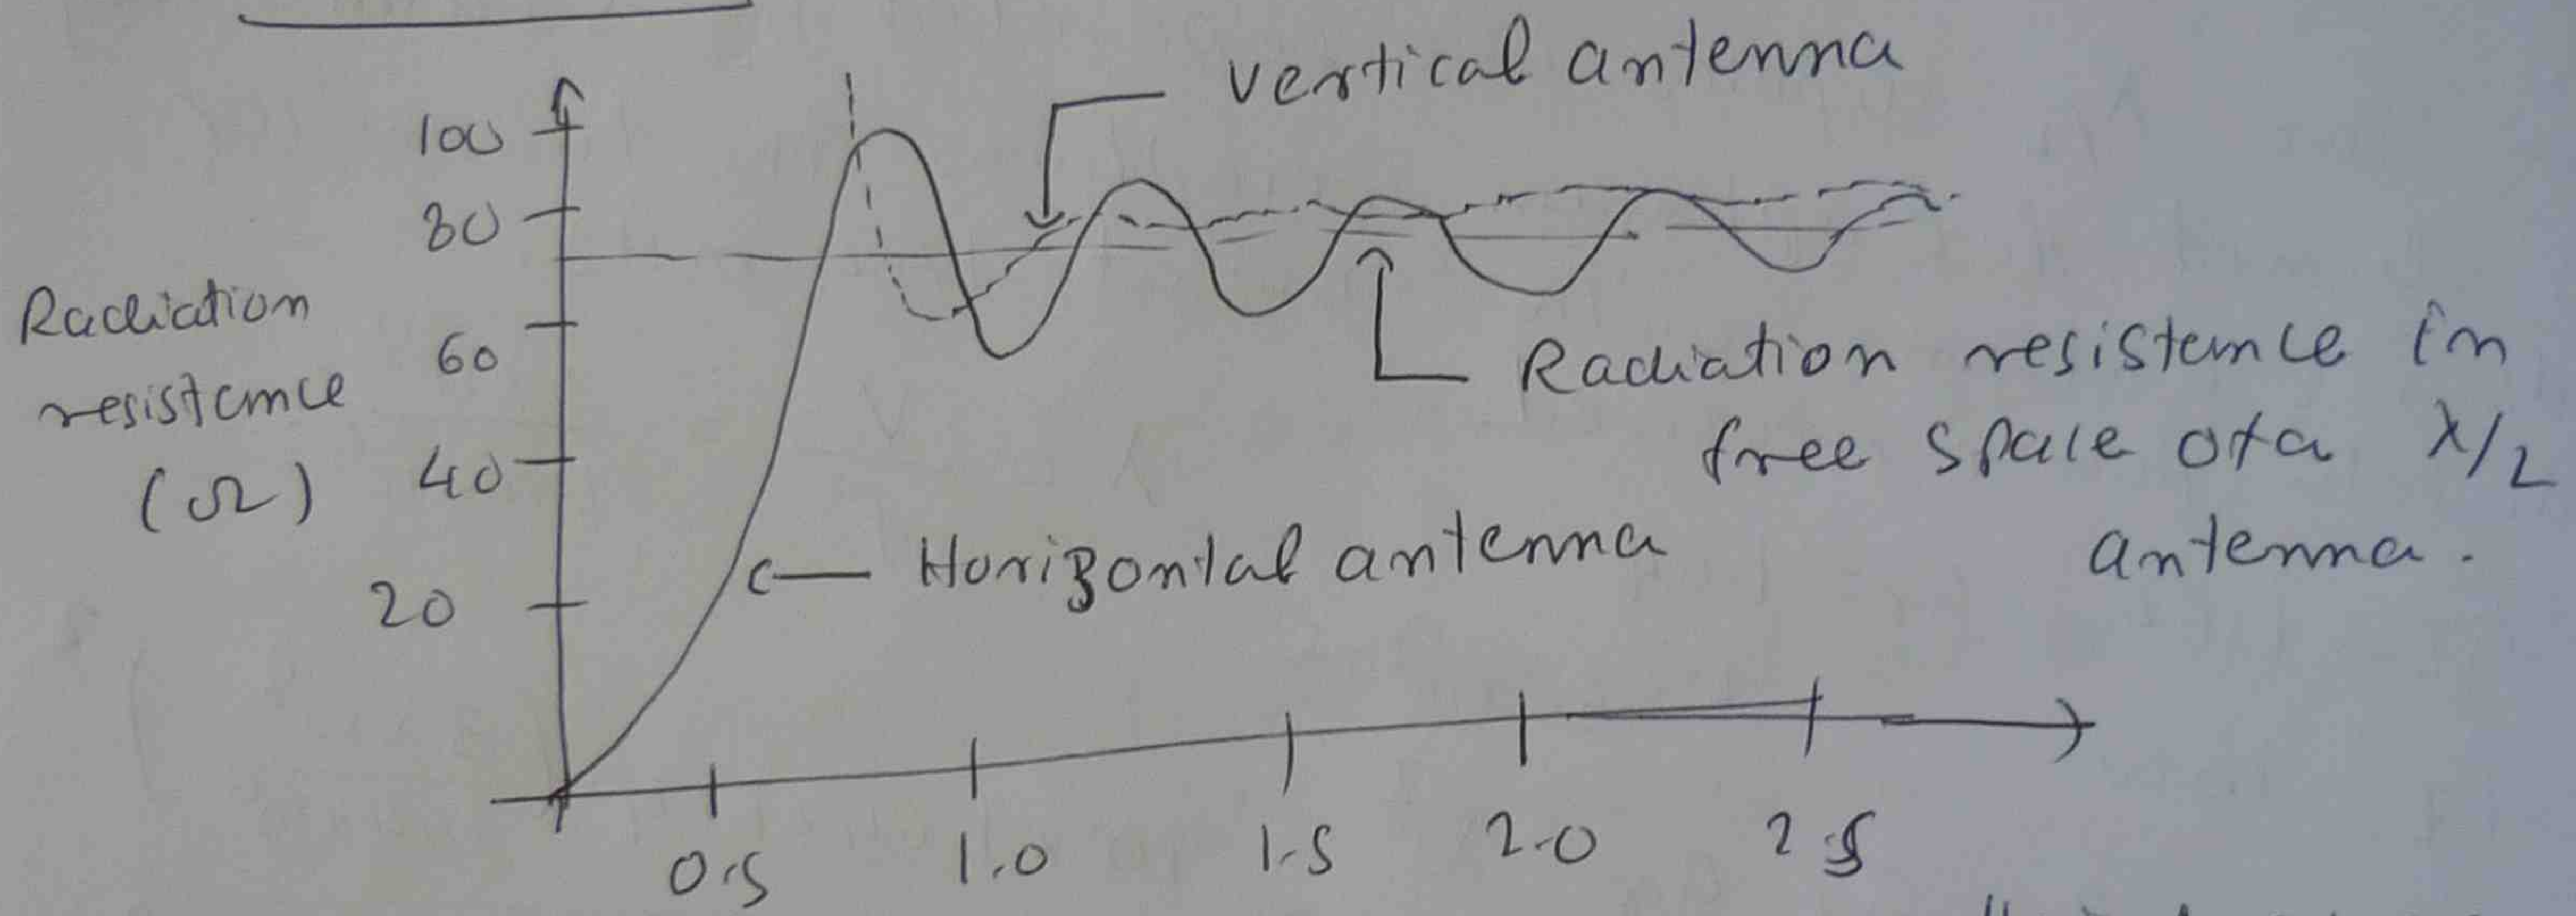 vertical antenna
100
80
60
40
20
Radiation
resistance
(Ω)
Radiation resistance in
free space of a λ/2
antenna.
Horizontal antenna
0.5
1.0
1.5
2.0
2.5